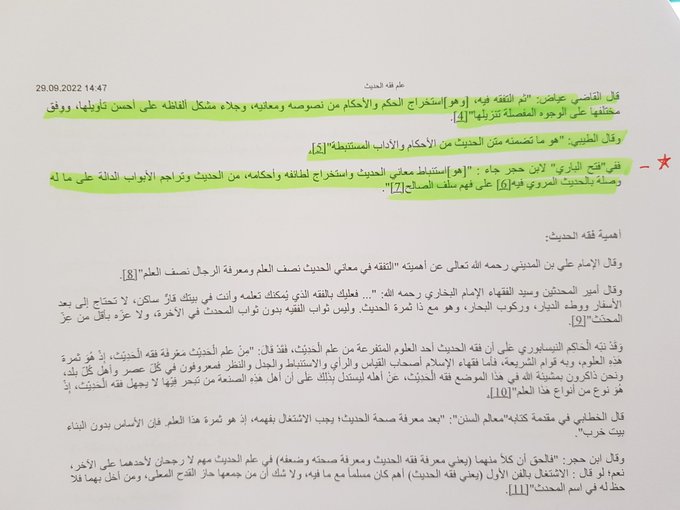 29.09.2022 14:47
علم فقه الحديث
قال القاضي عياض: "ثم التفقه فيه، [وهو]استخراج الحكم والأحكام من نصوصه ومعانيه، وجلاء مشكل ألفاظه على أحسن تأويلها، ووفق
مختلفها على الوجوه المفصلة تنزيلها"[4].
وقال الطيبي: "هو ما تضمنه متن الحديث من الأحكام والآداب المستنبطة"[5].
ففي"فتح الباري" لابن حجر جاء : "[هو]استنباط معاني الحديث واستخراج لطائفه وأحكامه، من الحديث وتراجم الأبواب الدالة على ما له
وصلة بالحديث المروي فيه[6] على فهم سلف الصالح[7]".
أهمية فقه الحديث:
وقال الإمام علي بن المديني رحمه الله تعالى عن أهميته "التفقه في معاني الحديث نصف العلم ومعرفة الرجال نصف العلم"[8].
وقال أمير المحدثين وسيد الفقهاء الإمام البخاري رحمه الله: "... فعليك بالفقه الذي يُمكنك تعلمه وأنت في بيتك قارٌ ساكن، لا تحتاج إلى بعد
الأسفار ووطء الديار، وركوب البحار، وهو مع ذا ثمرة الحديث. وليس ثواب الفقيه بدون ثواب المحدث في الآخرة، ولا عزّه بأقل من عِزّ
المحدّث"[9].
وَقَدْ نبّه الحَاكِم النيسابوري على أن فقه الحديث أحد العلوم المتفرعة من علم الْحَدِيْث، فَقَدْ قَالَ: "مِنْ علم الْحَدِيْث مَعْرفة فقه الْحَدِيْث، إذْ هُوَ ثمرة
هذِهِ العلوم، وبه قوام الشريعة، فأما فقهاء الإسلام أصحاب القياس والرأي والاستنباط والجدل والنظر فمعروفون في كُلّ عصر وأهل كُلّ بلد،
ونحن ذاكرون بمشيئة الله في هَذَا الموضع فقه الْحَدِيْث، عَنْ أهله ليستدل بِذَلِكَ عَلَى أن أهل هذِهِ الصنعة من تبحر فِيْهَا لا يجهل فقه الْحَدِيْث، إذْ
هُوَ نوع من أنواع هَذَا العلم"[10].
قال الخطابي في مقدمة كتابه"معالم السنن": "بعد معرفة صحة الحديث؛ يجب الاشتغال بفهمه، إذ هو ثمرة هذا العلم. فإن الأساس بدون البناء
بيت خرب".
وقال ابن حجر: "فالحق أن كلاً منهما (يعني معرفة فقه الحديث ومعرفة صحته وضعفه) في علم الحديث مهم لا رجحان لأحدهما على الآخر،
نعم؛ لو قال : الاشتغال بالفن الأول (يعني فقه الحديث) أهم كان مسلماً مع ما فيه، ولا شك أن من جمعها حاز القدح المعلى، ومن أخل بهما فلا
حظ له في اسم المحدث"[11].